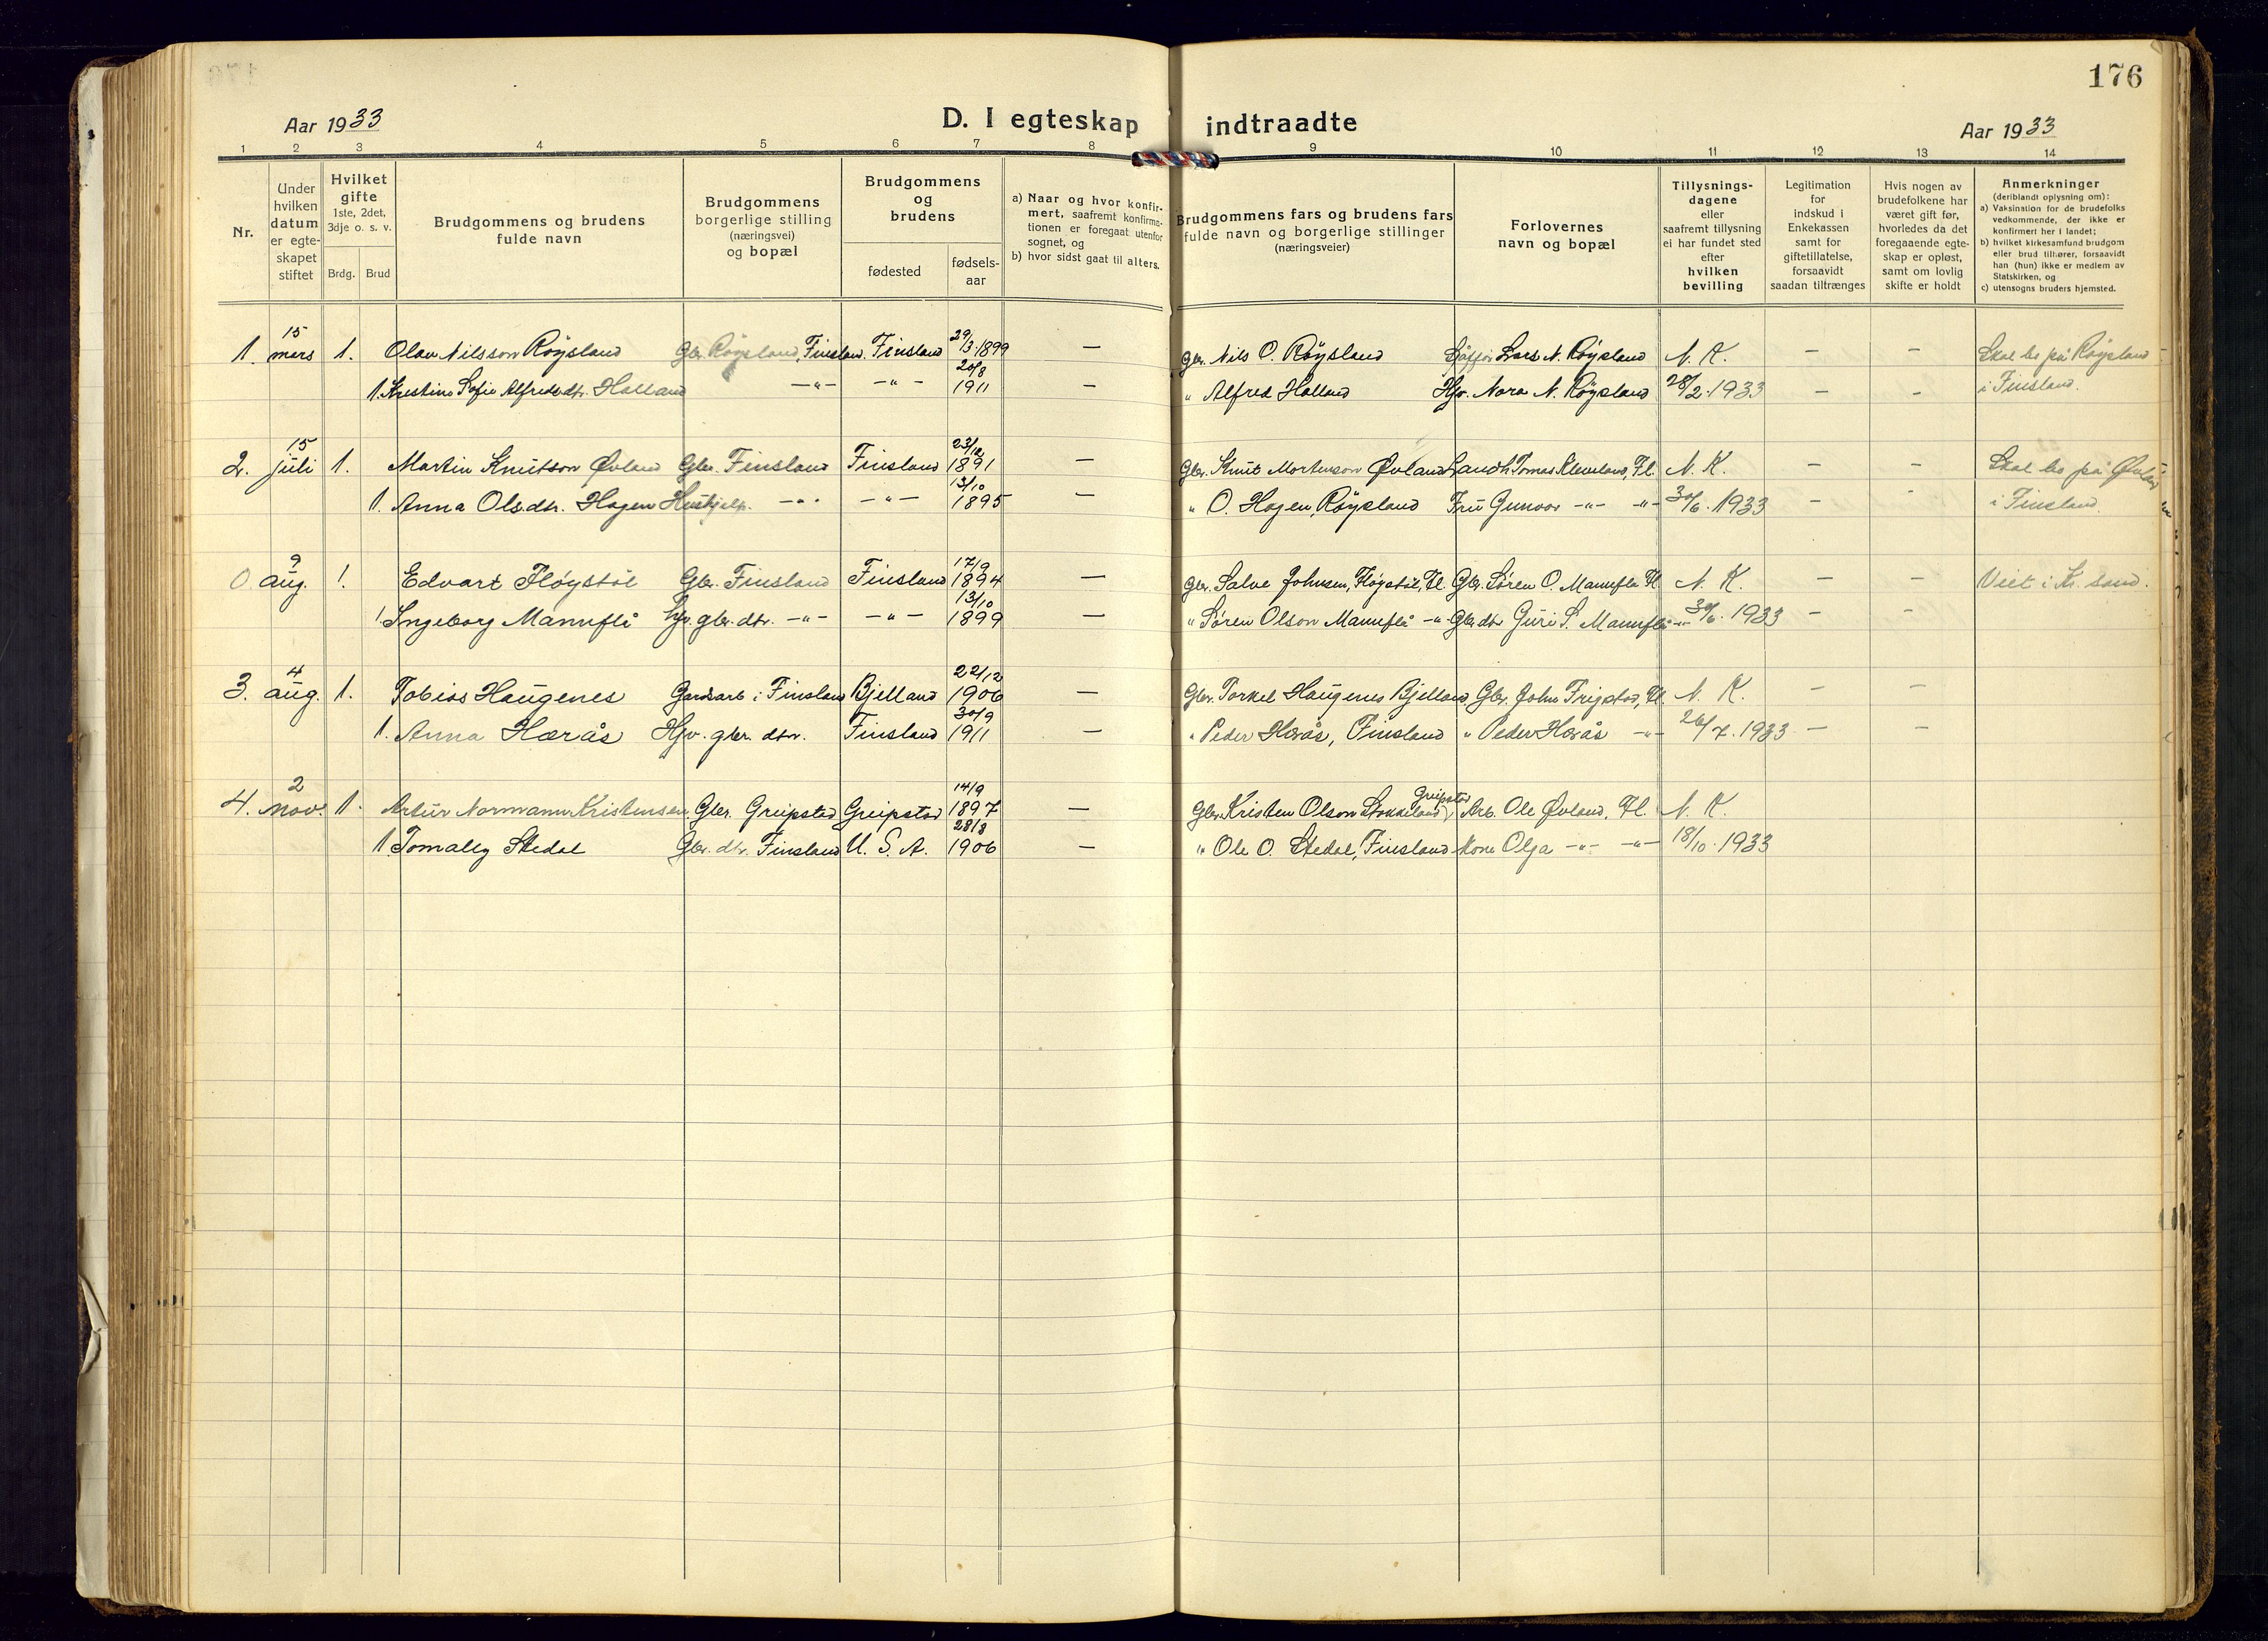 176
Aar 1933
D. I egteskap indtraadte
Aar 1933
1 2 3 4 5 6 7 8 9 10 11 12 13 14
Nr.
Under hvilken datum er egte-skapet stiftet
Hvilket gifte 1ste, 2det, 3dje o. s. v.
Brdg. Brud
Brudgommens og brudens fulde navn
Brudgommens borgerlige stilling (næringsvei) og bopæl
Brudgommens og brudens
fødested
fødsels-aar
a) Naar og hvor konfir-mert, saafremt konfirma-tionen er foregaat utenfor sognet, og
b) hvor sidst gaat til alters.
Brudgommens fars og brudens fars fulde navn og borgerlige stillinger (næringsveier)
Forlovernes navn og bopæl
Tillysnings-dagene eller saafremt tillysning ei har fundet sted efter hvilken bevilling
Legitimation for indskud i Enkekassen samt for giftetillatelse, forsaavidt saadan tiltrænges
Hvis nogen av brudefolkene har været gift før, hvorledes da det foregaaende egte-skap er opløst, samt om lovlig skifte er holdt
Anmerkninger (deriblandt oplysning om):
a) Vaksination for de brudefolks vedkommende, der ikke er konfirmert her i landet;
b) hvilket kirkesamfund brudgom eller brud tilhører, forsaavidt han (hun) ikke er medlem av Statskirken, og
c) utensogns bruders hjemsted.
1. 15 mars 1. Olav Nilsson Røysland Gbr. Røysland, Finsland. Finsland 29/3.1899 — Gbr. Nils O. Røysland Lars N. Røysland N. K. — — Skal bo på Røysland
1. Kristine Sofie Alfredsdtr. Holland —"— —"— 20/8 1911 — " Alfred Holland Hjv. Nora N. Røysland 28/2.1933 — — i Finsland.
2. 15 juli 1. Martin Knutsson Øvland Gbr. Finsland Finsland 23/12 1891 — Gbr. Knut Mortenson Øvland Landh. Tomas Kleveland, Fl. N. K. — — Skal bo på Øvland
1. Anna Olsdtr. Hagen Hushjelp. —"— —"— 13/10 1895 — " O. Hagen, Røysland Fru Gunvor —"— —"— 30/6.1933 — — i Finsland.
0. 9 aug. 1. Edvart Fløystøl Gbr. Finsland Finsland 17/9 1894 — Gbr. Salve Johnsen, Fløystøl, Fl. Gbr. Søren O. Mannflå Fl. N. K. — — Viet i Kr.sand.
1. Ingeborg Mannflå Hjv. gbr. dtr. —"— —"— 13/10 1899 — " Søren Olson Mannflå —"— Gbr dtr Guri S. Mannflå —"— 30/6.1933 — —
3. 4 aug. 1. Tobias Haugenes Gardsarb i Finsland Bjelland 22/12 1906 — Gbr. Torkel Haugenes Bjelland, Gbr. John Frigstad, Fl. N. K. — —
1. Anna Harås Hjv. gbr. dtr. Finsland 30/9 1911 — " Peder Harås, Finsland " Peder Harås —"— 26/7.1933 — —
4. 2 nov. 1. Artur Normann Kristensen Gbr. Greipstad Greipstad 14/9 1897 — Gbr. Kristen Olson Stokkeland, Greipstad Arb. Ole Øvland, Fl. N. K.
1. Tomally Stedal Gbr. dtr. Finsland U. S. A. 28/8 1906 — " Ole O. Stedal, Finsland Kone Olga —"— —"— 18/10.1933